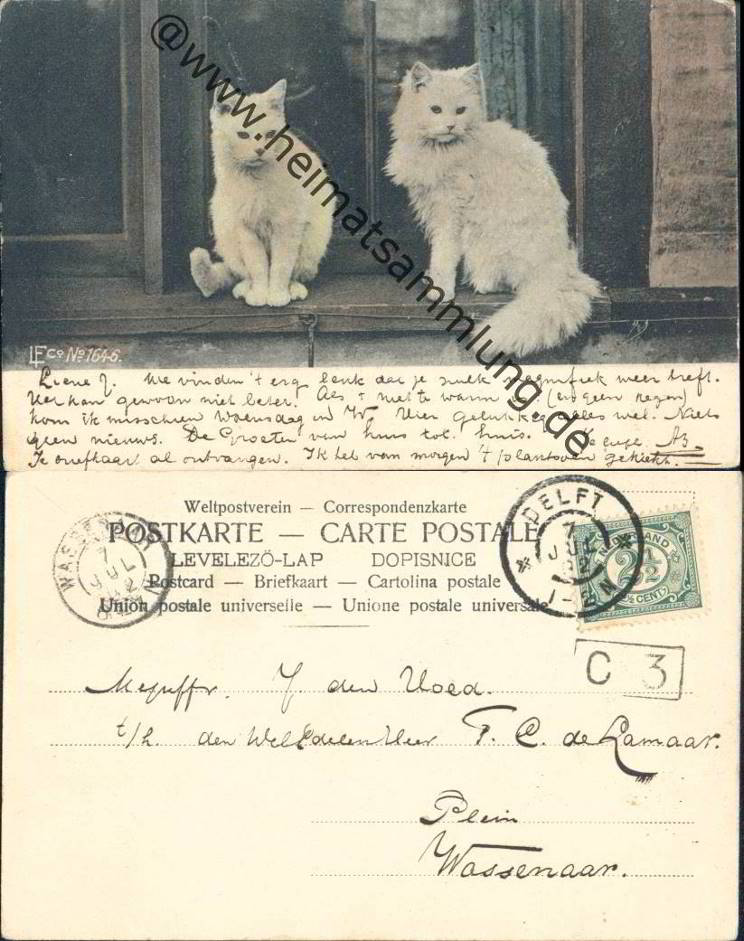 @www.heimatsammlung.de
LE Co No 1646.
Lieve J. We vinden 't erg leuk dat je zulk magnifiek weer treft.
Het kan gewoon niet beter. Als 't niet te warm is (en geen regen)
kom ik misschien Woensdag in W. Hier gelukkig alles wel. Niets
geen nieuws. De Groeten van huis tot huis. Je
Je briefkaart al ontvangen. Ik heb van morgen 't plantsoen gekiekt.
Weltpostverein — Correspondenzkarte
POSTKARTE — CARTE POSTALE
LEVELEZÖ-LAP DOPISNICE
Postcard — Briefkaart — Cartolina postale
Union postale universelle — Unione postale universale
WASSENAAR
7
JUL
02
DELFT
7
JUL
02
1-2N
NEDERLAND
2½
CENT
C 3
Mejuffr. J. den Voed.
t/h. den WelEdelen Heer F. C. de Lamaar.
Plein
Wassenaar.